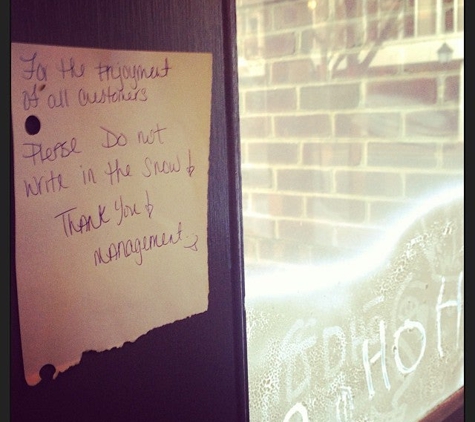 For the Enjoyment
of all customers
Please Do not
write in the snow!
Thank You!
management
HOH